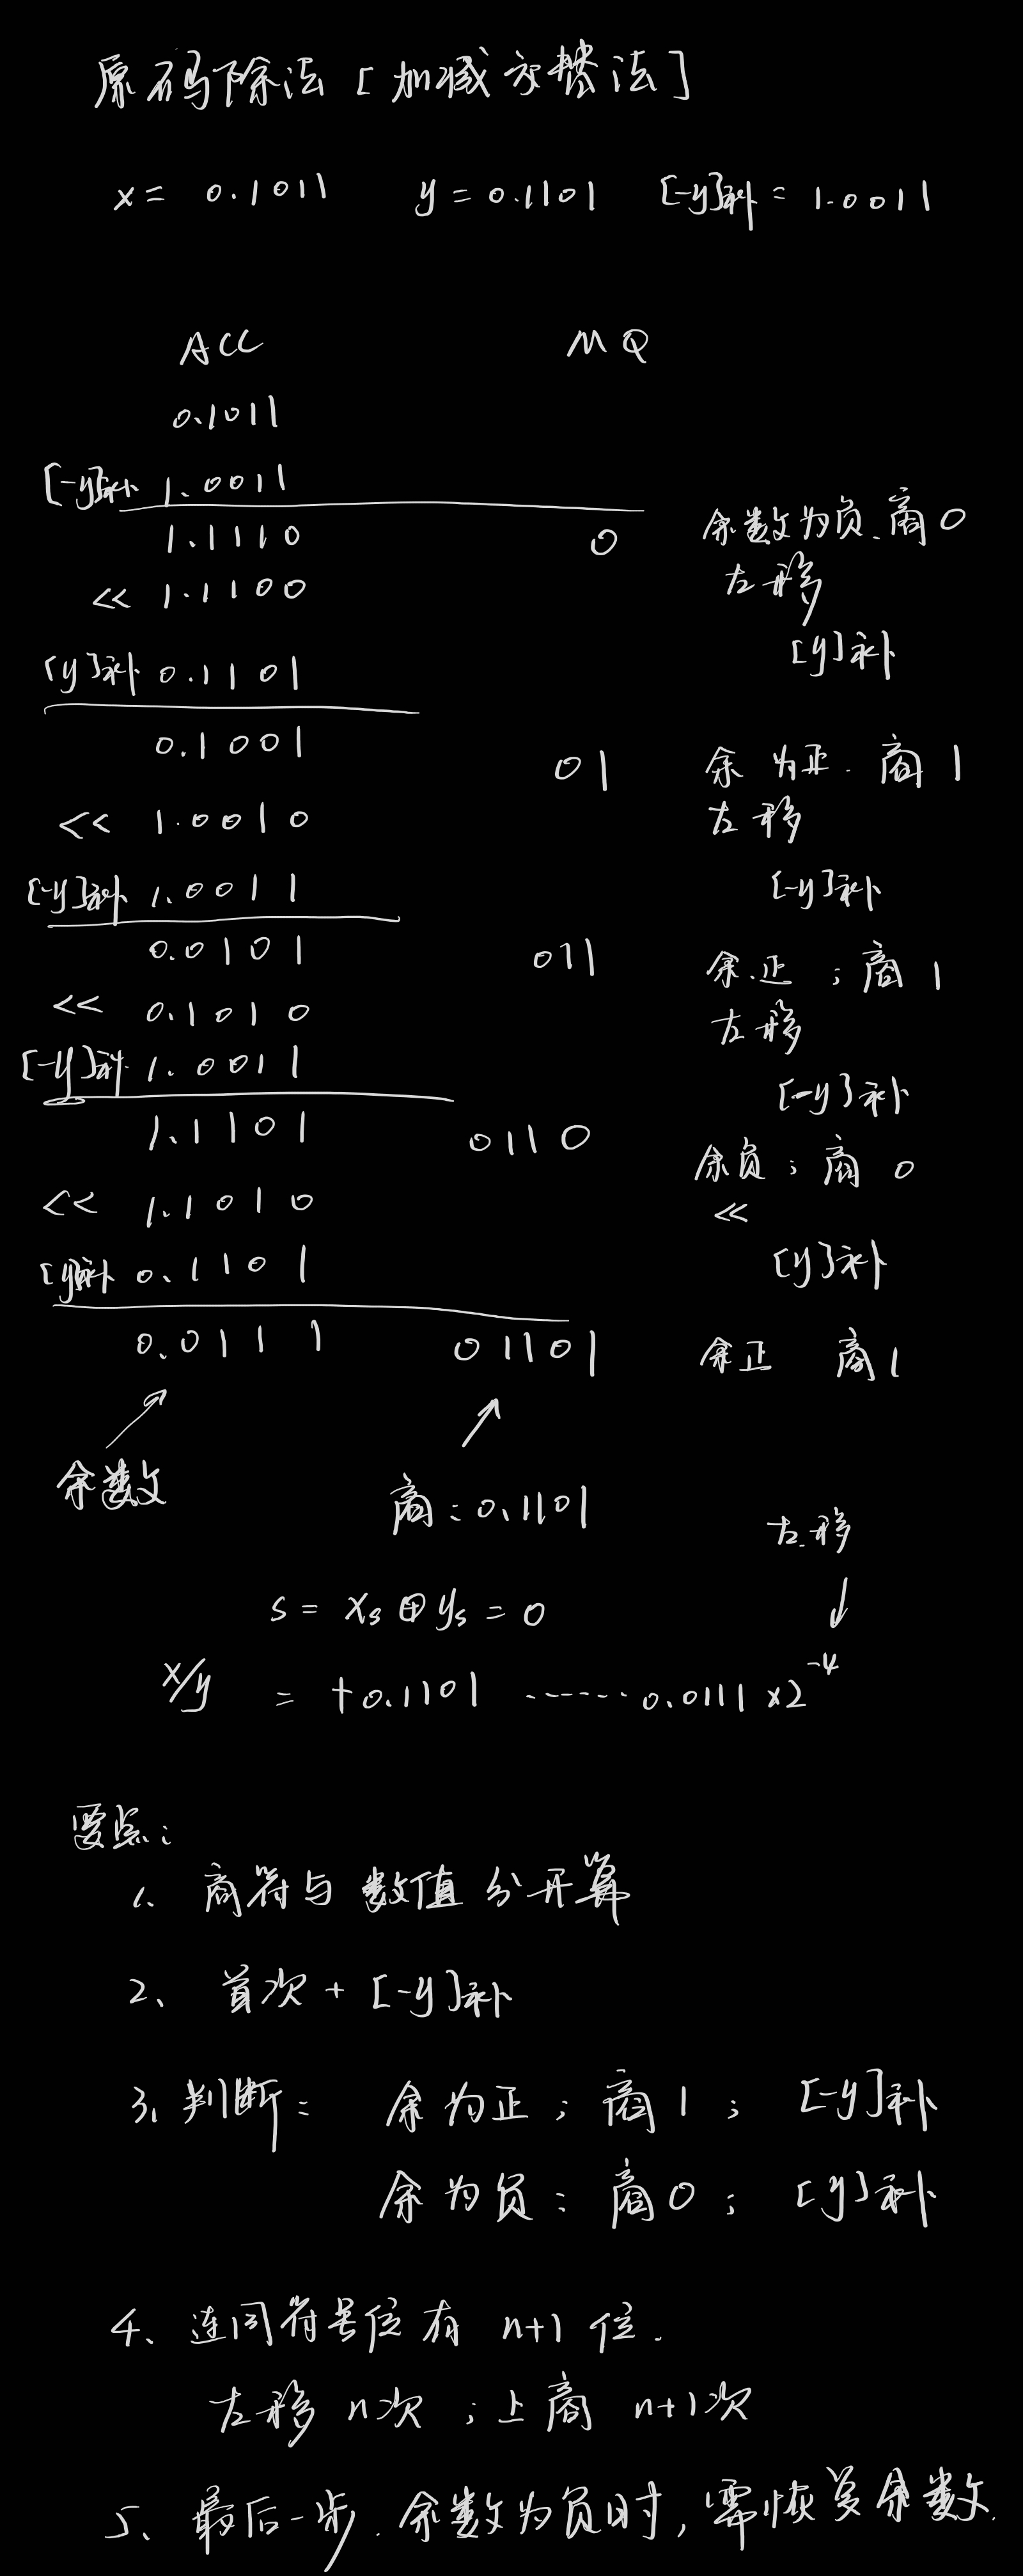 原码除法 [加减交替法]
x = 0.1011 y = 0.1101 [-y]补 = 1.0011
ACC MQ
0.1011
[-y]补 1.0011
1.1110 0 余数为负、商0
<< 1.1100 左移
[y]补
[y]补 0.1101
0.1001 01 余 为正. 商 1
<< 1.0010 左移
[-y]补 1.0011 [-y]补
0.0101 011 余.正 ; 商 1
<< 0.1010 左移
[-y]补 1.0011
[-y]补
1.1101 0110 余负 ; 商 0
<< 1.1010 <<
[y]补 0.1101 [y]补
0.0111 01101 余正 商1
余数
商 : 0.1101 左移
s = xs ⊕ ys = 0
x/y = +0.1101 ······ 0.0111 ×2^-4
要点:
1、商符与数值分开算
2、首次 + [-y]补
3、判断: 余为正 ; 商1 ; [-y]补
余为负 : 商0 ; [y]补
4、连同符号位有 n+1 位.
左移 n次 ; 上商 n+1次
5、最后一步. 余数为负时, 需恢复余数.